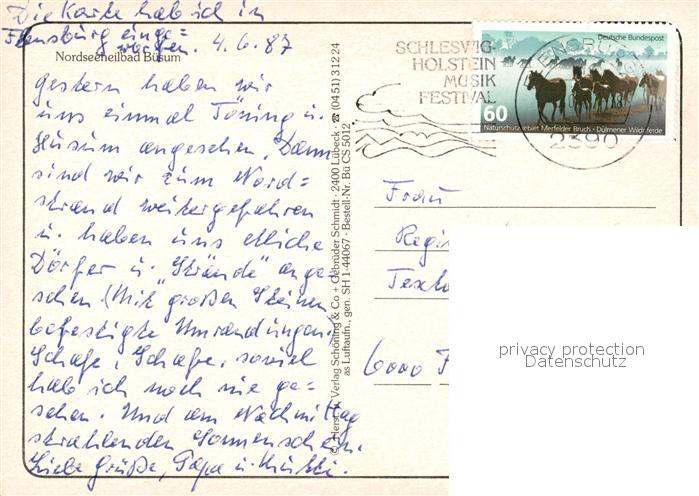 Die Karte hab ich in
Flensburg einge=
worfen. 4.6.87
Nordseeheilbad Büsum
gestern haben wir
uns einmal Tönning u.
Husum angesehen. Dann
sind wir zum Nord=
strand weitergefahren
u. haben uns etliche
Dörfer u. "Strände" ange=
sehen (Mit großen Steinen
befestigte Umrandungen).
Schafe, Schafe, soviel
hab ich noch nie ge=
sehen. Und am Nachmittag
strahlenden Sonnenschein.
Liebe Grüße, Papa u. Mutti.
© Herst. u. Verlag Schöning & Co + Gebrüder Schmidt · 2400 Lübeck · ☎ (04 51) 3 12 24
as Luftaufn., gen. SH 1-44067 · Bestell-Nr. Bü CS 5012
SCHLESWIG-
HOLSTEIN
MUSIK
FESTIVAL
Deutsche Bundespost
60
Naturschutzgebiet Merfelder Bruch · Dülmener Wildpferde
FLENSBURG
2390
Frau
Regi
Texto
6000 F
privacy protection
Datenschutz